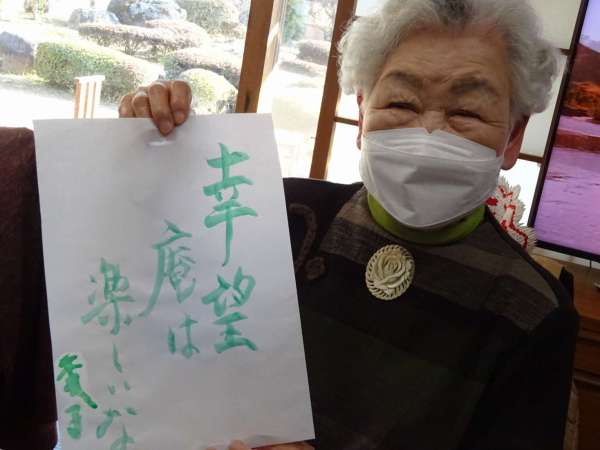 幸望
庵は
楽しいな
愛子